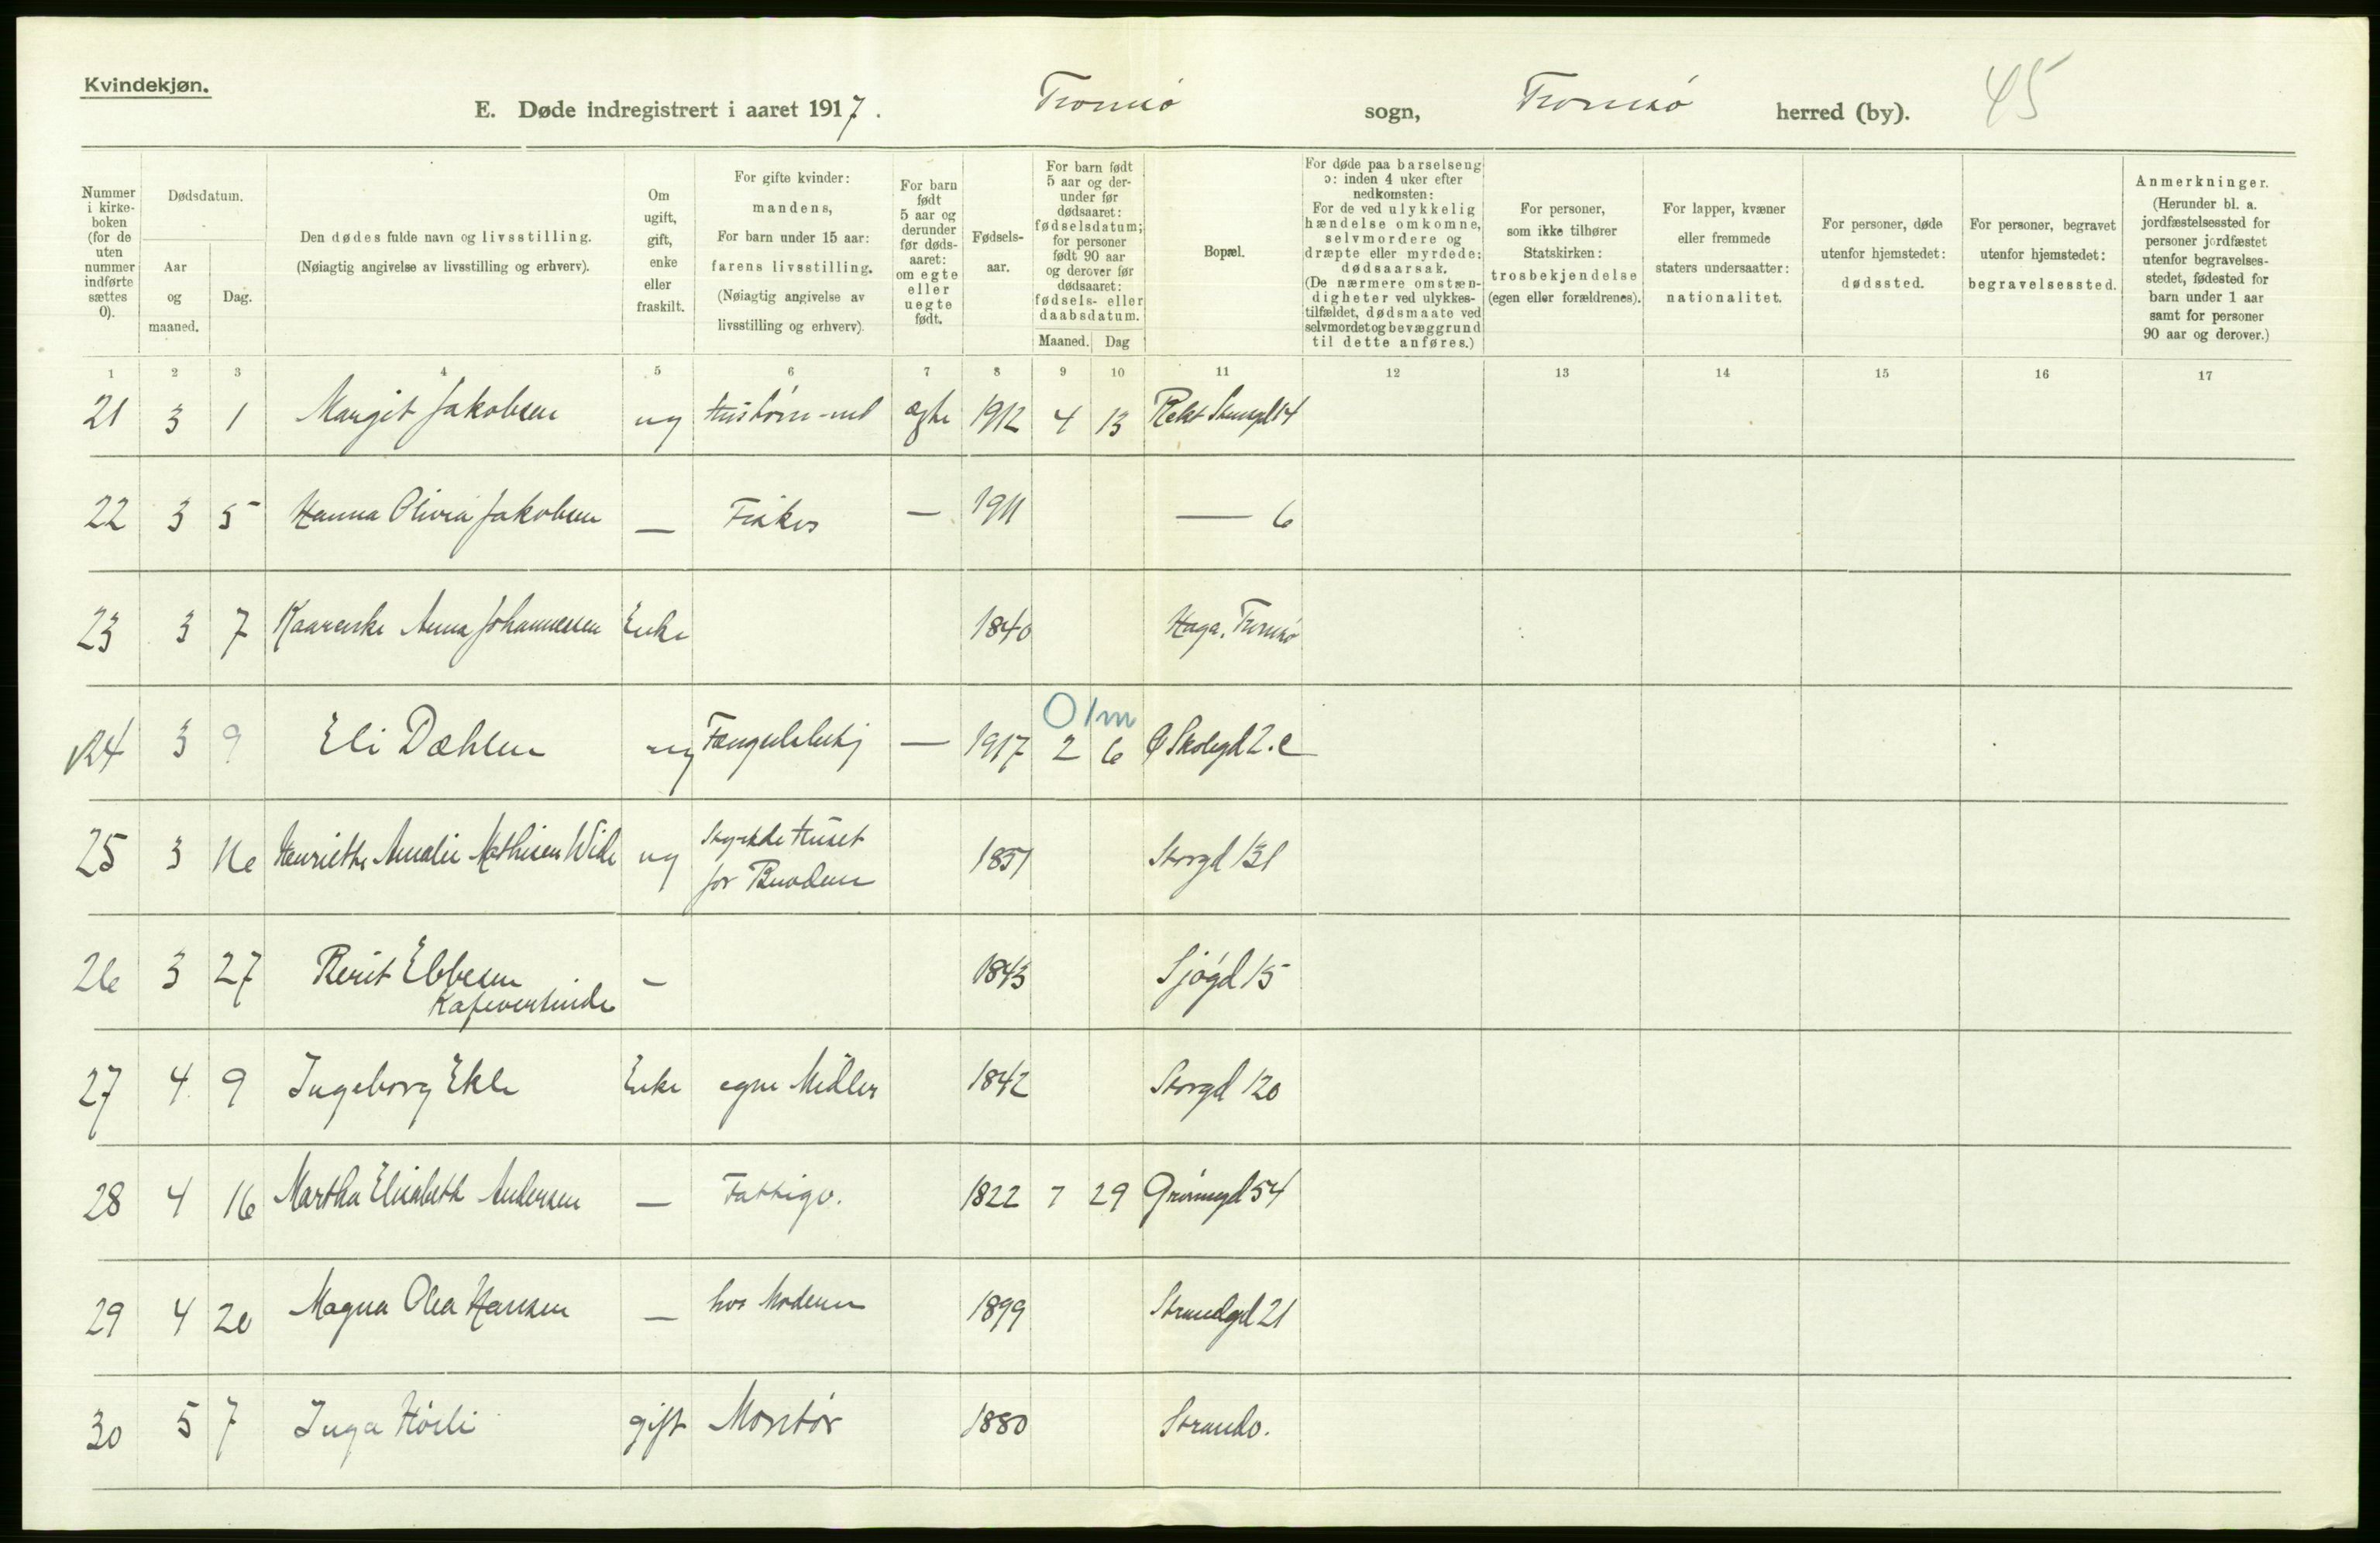 Kvindekjøn.
E. Døde indregistrert i aaret 1917. Tromsø sogn, Tromsø herred (by). 45
Nummer i kirkeboken (for de uten nummer indførte sættes 0).
Dødsdatum.
Aar og maaned.
Dag.
Den dødes fulde navn og livsstilling.
(Nøiagtig angivelse av livsstilling og erhverv).
Om ugift, gift, enke eller fraskilt.
For gifte kvinder: mandens,
For barn under 15 aar: farens livsstilling.
(Nøiagtig angivelse av livsstilling og erhverv).
For barn født 5 aar og derunder før dødsaaret: om egte eller uegte født.
Fødselsaar.
For barn født 5 aar og derunder før dødsaaret: fødselsdatum; for personer født 90 aar og derover før dødsaaret: fødsels- eller daabsdatum.
Maaned. Dag
Bopæl.
For døde paa barselseng ɔ: inden 4 uker efter nedkomsten:
For de ved ulykkelig hændelse omkomne, selvmordere og dræpte eller myrdede: dødsaarsak.
(De nærmere omstændigheter ved ulykkestilfældet, dødsmaate ved selvmordet og bevæggrund til dette anføres.)
For personer, som ikke tilhører Statskirken: trosbekjendelse (egen eller forældrenes).
For lapper, kvæner eller fremmede staters undersaatter: nationalitet.
For personer, døde utenfor hjemstedet: dødssted.
For personer, begravet utenfor hjemstedet: begravelsessted.
Anmerkninger.
(Herunder bl. a. jordfæstelsessted for personer jordfæstet utenfor begravelsesstedet, fødested for barn under 1 aar samt for personer 90 aar og derover.)
1 2 3 4 5 6 7 8 9 10 11 12 13 14 15 16 17
21 3 1 Margit Jakobsen ug ægte 1912 4 13 14
22 3 5 Hanna Olivia Jakobsen — Fisker — 1911 — 6
23 3 7 Kaarenske Anna Johannesen Enke 1840 Haga. Tromsø
0 1m
24 3 9 Eli Dæhlen ug — 1917 2 6 Skolegd 2.c
25 3 16 Henriette Amalie Mathisen Wide ug Styrkde Huset for Broderen 1851 Storgd 131
26 3 27 Berit Ebbesen — 1843 Sjøgd 15
Kafevertinde
27 4 9 Ingeborg Ekle Enke egne Midler 1842 Storgd 120
28 4 16 Martha Elisabeth Andersen — Fattigv. 1822 7 29 Grønnegd 54
29 4 20 Magna Olea Hansen — hos Moderen 1899 Strandgd 21
30 5 7 Inga Hörli gift Montör 1880 Strandv.